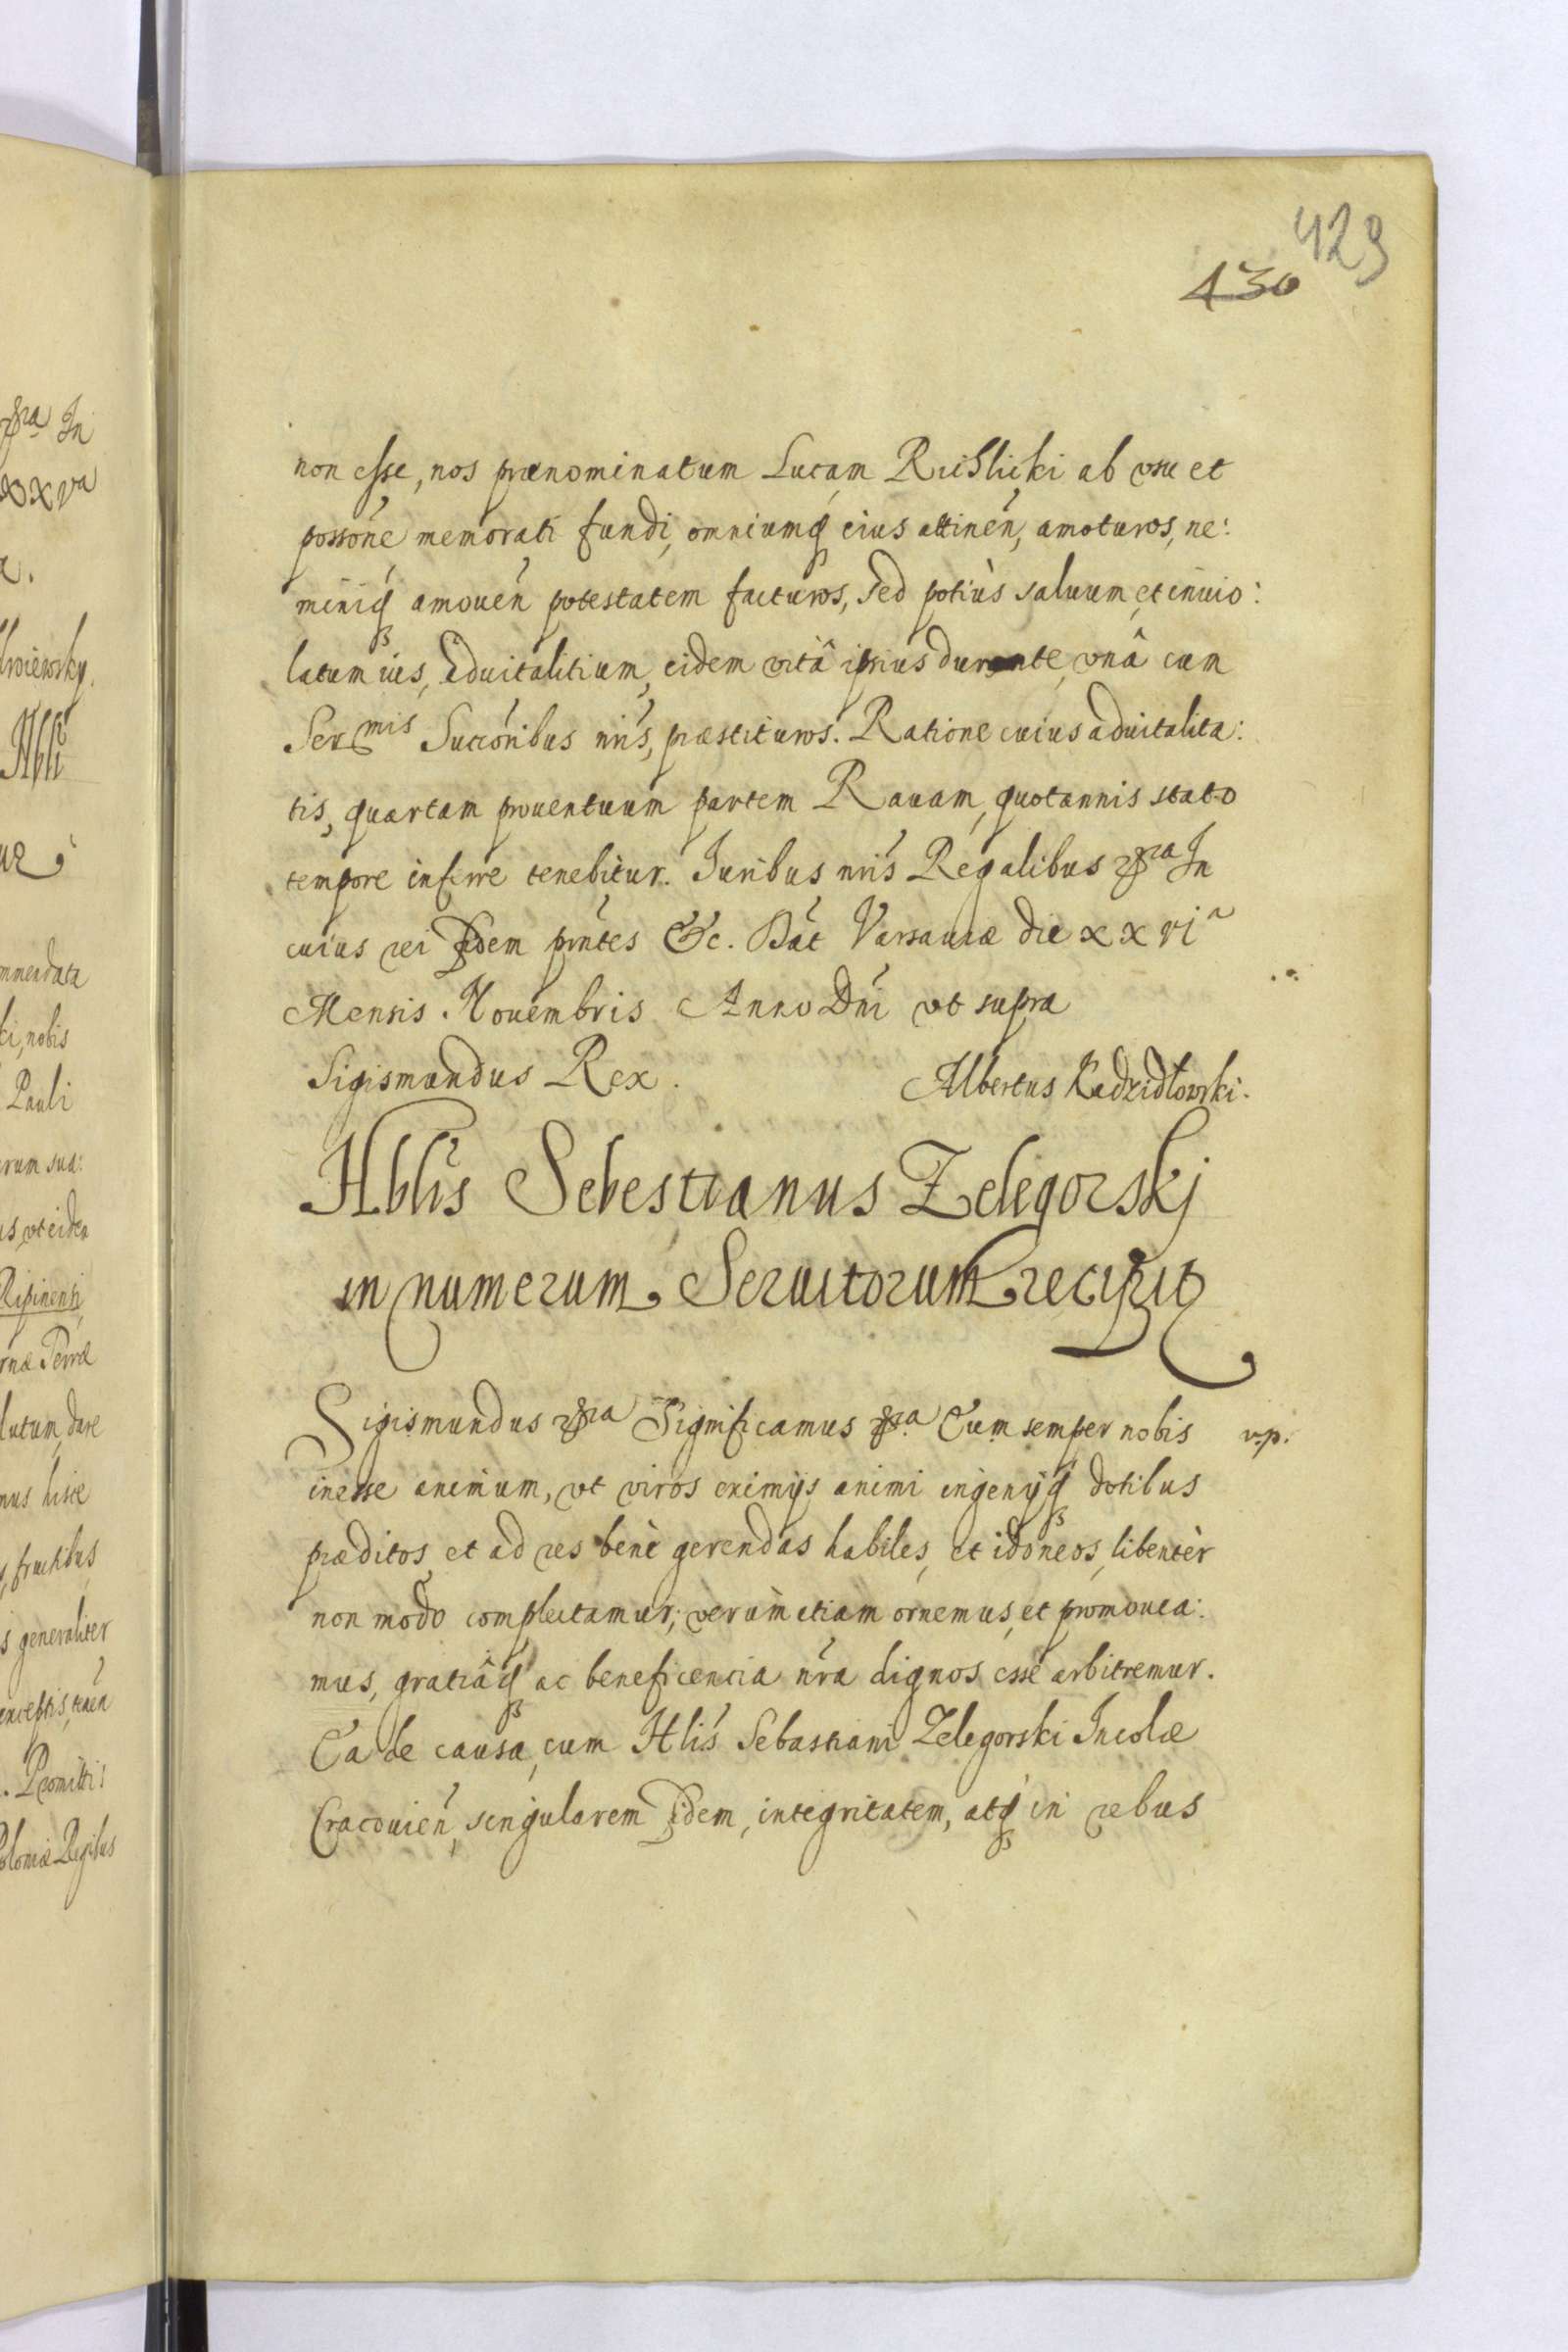 429
430
non esse, nos prænominatum Lucam Ruslicki ab vsu et
possōne memorati fundi, omniumq eius attinēn, amoturos, ne:
miniq amouēn potestatem facturos, sed potiùs saluum et inuio:
latum ius, aduitalitium, eidem vitâ ipsius durante, vnâ cum
Ser^mis Succōribus nr̄is, præstituros. Ratione cuius aduitalita:
tis, quartam prouentuum partem Rauam, quotannis stato
tempore inferre tenebitur. Iuribus nr̄is Regalibus In
cuius rei fidem pn̄tes &c. Dat̄ Varsauiæ die xxvi^a
Mensis Nouembris Anno Dn̄i vt supra
Sigismundus Rex. Albertus Kadzidłowski.
Nb̄lis Sebestianus Zelegorskj
in numerum Seruitorum recipit
Sigismundus Significamus Cum semper nobis v.p.
inesse animum, vt viros eximijs animi ingenijq dotibus
præditos et ad res benè gerendas habiles, et idoneos, libentèr
non modo complectamur; verùm etiam ornemus, et promouea:
mus, gratiâq ac beneficencia nr̄a dignos esse arbitremur.
Ea de causa, cum Nb̄lis Sebastiani Zelegorski Incolæ
Cracouiēn, singularem fidem, integritatem, atq in rebus